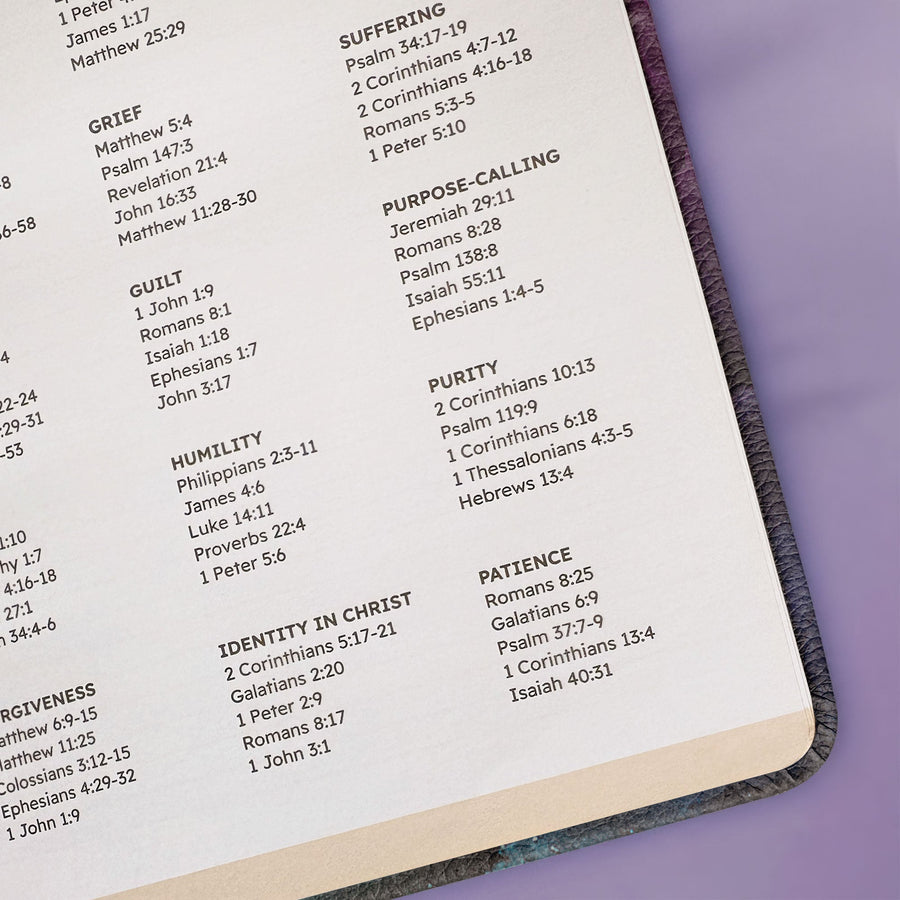 -8
-58
4
22-24
:29-31
-53
1:10
hy 1:7
4:16-18
27:1
34:4-6
RGIVENESS
atthew 6:9-15
Matthew 11:25
Colossians 3:12-15
Ephesians 4:29-32
1 John 1:9
1 Peter
James 1:17
Matthew 25:29
GRIEF
Matthew 5:4
Psalm 147:3
Revelation 21:4
John 16:33
Matthew 11:28-30
GUILT
1 John 1:9
Romans 8:1
Isaiah 1:18
Ephesians 1:7
John 3:17
HUMILITY
Philippians 2:3-11
James 4:6
Luke 14:11
Proverbs 22:4
1 Peter 5:6
IDENTITY IN CHRIST
2 Corinthians 5:17-21
Galatians 2:20
1 Peter 2:9
Romans 8:17
1 John 3:1
SUFFERING
Psalm 34:17-19
2 Corinthians 4:7-12
2 Corinthians 4:16-18
Romans 5:3-5
1 Peter 5:10
PURPOSE-CALLING
Jeremiah 29:11
Romans 8:28
Psalm 138:8
Isaiah 55:11
Ephesians 1:4-5
PURITY
2 Corinthians 10:13
Psalm 119:9
1 Corinthians 6:18
1 Thessalonians 4:3-5
Hebrews 13:4
PATIENCE
Romans 8:25
Galatians 6:9
Psalm 37:7-9
1 Corinthians 13:4
Isaiah 40:31